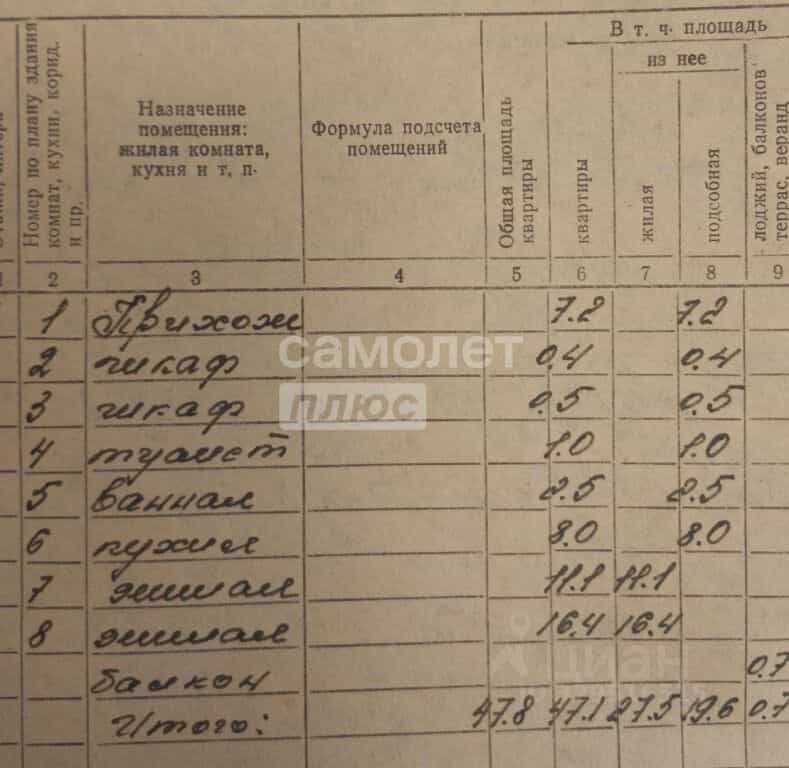 В т. ч. площадь
из нее
Номер по плану здания комнат, кухни, корид. и пр.
Назначение
помещения:
жилая комната,
кухня и т. п.
Формула подсчета
помещений
Общая площадь
квартиры
квартиры
жилая
подсобная
лоджий, балконов
террас, веранд
2 3 4 5 6 7 8 9
1 Прихож 7.2 7.2
2 шкаф 0.4 0.4
3 шкаф 0.5 0.5
4 туалет 1.0 1.0
5 ванная 2.5 2.5
6 кухня 8.0 8.0
7 жилая 11.1 11.1
8 жилая 16.4 16.4
балкон 0.7
Итого: 47.8 47.1 27.5 19.6 0.7
самолет
плюс
циан